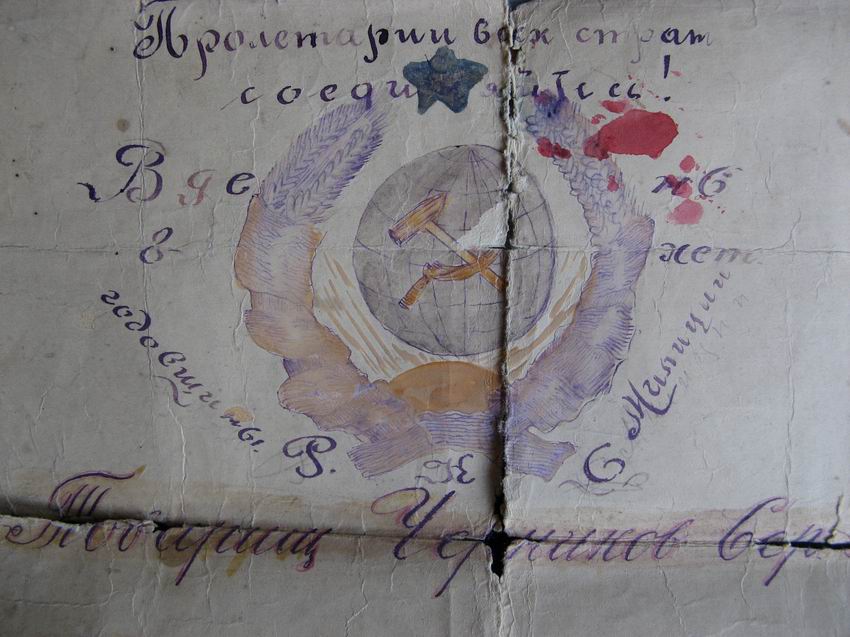 Пролетарии всех стран
соединяйтесь!
В день 6
й лет
годовщины
Р. К. С. Милиции
Товарищ Черников Сер